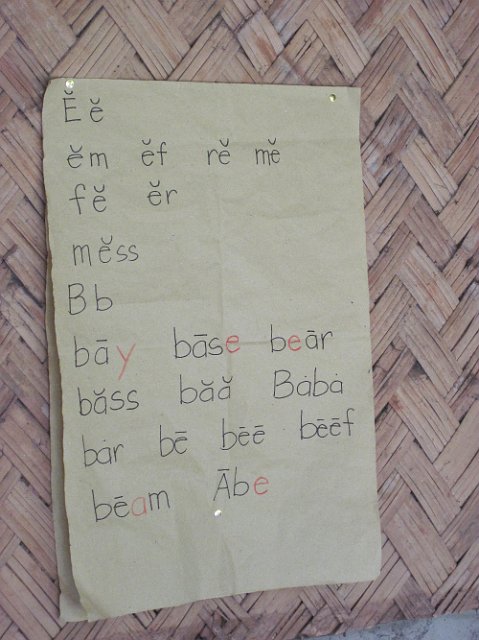 Ĕ ĕ
ĕm ĕf rĕ mĕ
fĕ ĕr
mĕss
Bb
bāy bāse beār
băss băă Bȧbȧ
bȧr bē bēē bēēf
bēam Ābe